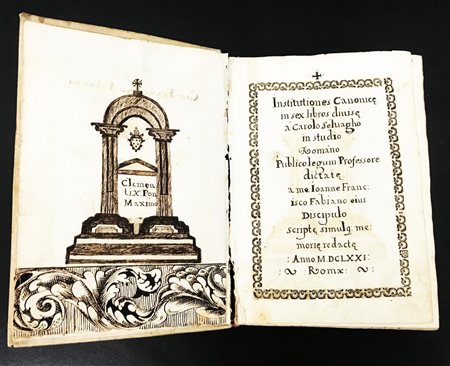 Clemen
ti.X.Pon
Maximo
Institutiones Canonicę
in sex libros divisę
a Carolo Selvagho
in studio
Romano
Publico legum Professore
dictatę
a me Ioanne Franc:
isco Fabiano eius
Discipulo
scriptę simulq. me:
morię redactę
:Anno M DCLXXI:
Romæ